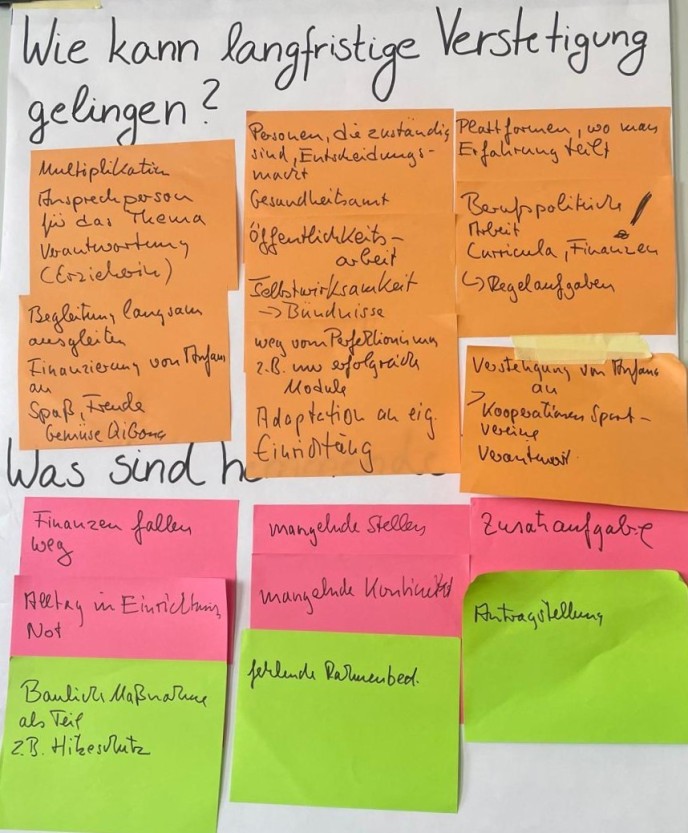 Wie kann langfristige Verstetigung
gelingen?
Multiplikation
Ansprechperson
für das Thema
Verantwortung
(Erzieherin)
Begleitung langsam
ausgleiten
Finanzierung von Anfang
an
Spaß, Freude
Gemüse QiGong
Personen, die zuständig
sind, Entscheidungs-
macht
Gesundheitsamt
Öffentlichkeits-
arbeit
Selbstwirksamkeit
→ Bündnisse
weg vom Perfektionismus
z.B. nur erfolgreich
Module
Adaptation an eig.
Einrichtung
Plattformen, wo man
Erfahrung teilt
Berufspolitische
Arbeit
Curricula, Finanzen
↳ Regelaufgaben
Verstetigung von Anfang
an
> Kooperationen Sport-
vereine
Verantwort.
Was sind
Finanzen fallen
weg
Alltag in Einrichtung
Not
Bauliche Maßnahme
als Teil
z.B. Hitzeschutz
mangelnde Stellen
mangelnde Kontinuität
fehlende Rahmenbed.
Zusatzaufgabe
Antragstellung